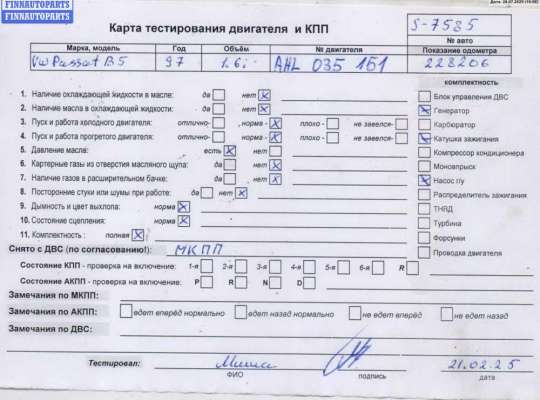 FINNAUTOPARTS
FINNAUTOPARTS
Карта тестирования двигателя и КПП
S-7535
№ авто
Марка, модель Год Объём № двигателя Показание одометра
VW Passat B5 97 1.6i AHL 035 151 228206
1. Наличие охлаждающей жидкости в масле: да нет
2. Наличие масла в охлаждающей жидкости: да нет
3. Пуск и работа холодного двигателя: отлично норма плохо не завелся
4. Пуск и работа прогретого двигателя: отлично норма плохо не завелся
5. Давление масле: есть нет
6. Картерные газы из отверстия масляного щупа: да нет
7. Наличие газов в расширительном бачке: да нет
8. Посторонние стуки или шумы при работе: да нет
9. Дымность и цвет выхлопа: норма
10. Состояние сцепления: норма
11. Комплектность: полная
комплектность:
Блок управления ДВС
Генератор
Карбюратор
Катушка зажигания
Компрессор кондиционера
Моновпрыск
Насос г/у
Распределитель зажигания
ТНВД
Турбина
Форсунки
Проводка двигателя
Снято с ДВС (по согласованию!): МКПП
Состояние КПП - проверка на включение: 1-я 2-я 3-я 4-я 5-я 6-я R
Состояние АКПП - проверка на включение: P R N D
Замечания по МКПП:
Замечания по АКПП: едет вперёд нормально едет назад нормально не едет вперёд не едет назад
Замечания по ДВС:
Тестировал: Миша 21.02.25
ФИО подпись дата